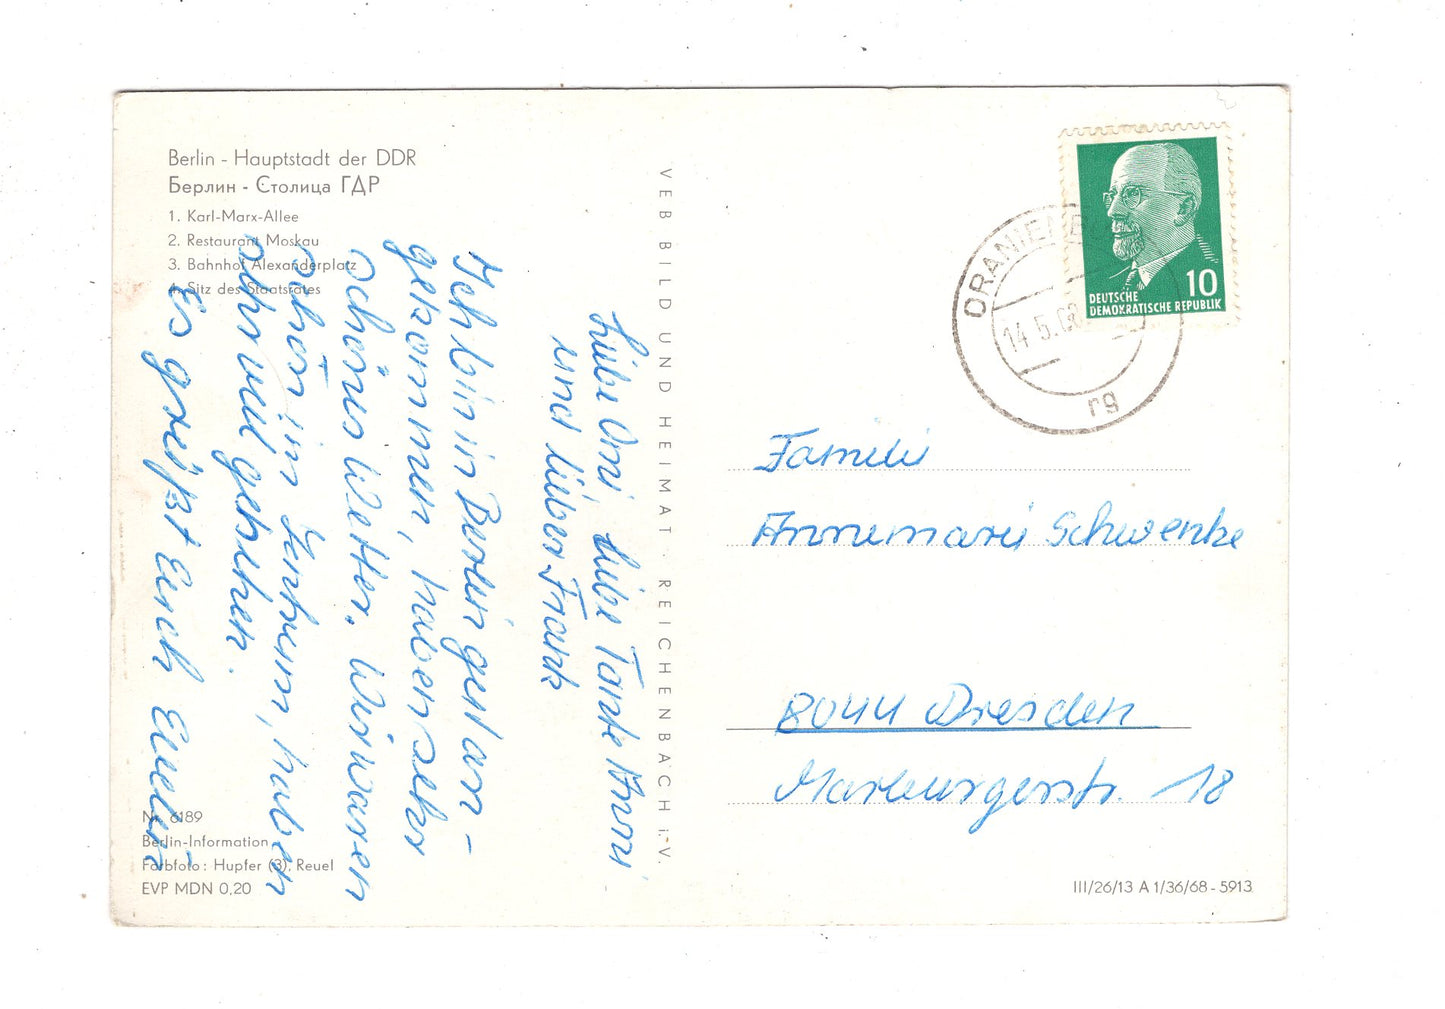 Berlin - Hauptstadt der DDR
Берлин - Столица ГДР
1. Karl-Marx-Allee
2. Restaurant Moskau
3. Bahnhof Alexanderplatz
4. Sitz des Staatsrates
Liebe Omi, liebe Tante Anni
und lieber Frank
Ich bin in Berlin gut an-
gekommen, haben sehr
schönes Wetter. Wir waren
schon im haben
sehr viel gesehen.
Es grüßt Euch Evelin
Nr. 6189
Berlin-Information
Farbfoto: Hupfer (3), Reuel
EVP MDN 0,20
VEB BILD UND HEIMAT · REICHENBACH i. V.
10
DEUTSCHE
DEMOKRATISCHE REPUBLIK
14.5.68
rg
Familie
Annemarie Schwenke
8044 Dresden
Marburgerstr. 18
III/26/13 A 1/36/68 - 5913